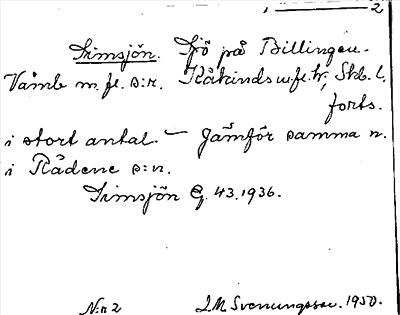 2
Simsjön. Sjö på Billingen.
Våmb m. fl. s:nr. Kåkinds m. fl. hr, Skb. l.
forts.
i stort antal. — Jämför samma n.
i Rådene s:n.
Simsjön G. 43. 1936.
N:r 2 J. M. Svenungsson. 1950.